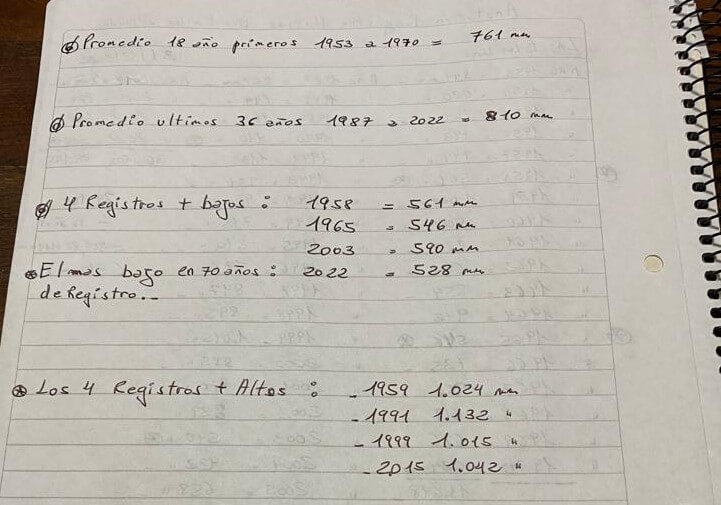 Promedio 18 año primeros 1953 a 1970 = 761 mm
Promedio ultimos 36 años 1987 a 2022 = 810 mm
4 Registros + bajos : 1958 = 561 mm
1965 = 546 mm
2003 = 590 mm
El mas bajo en 70 años : 2022 = 528 mm
de Registro.--
Los 4 Registros + Altos : - 1959 1.024 mm
- 1991 1.132 "
- 1999 1.015 "
- 2015 1.042 "